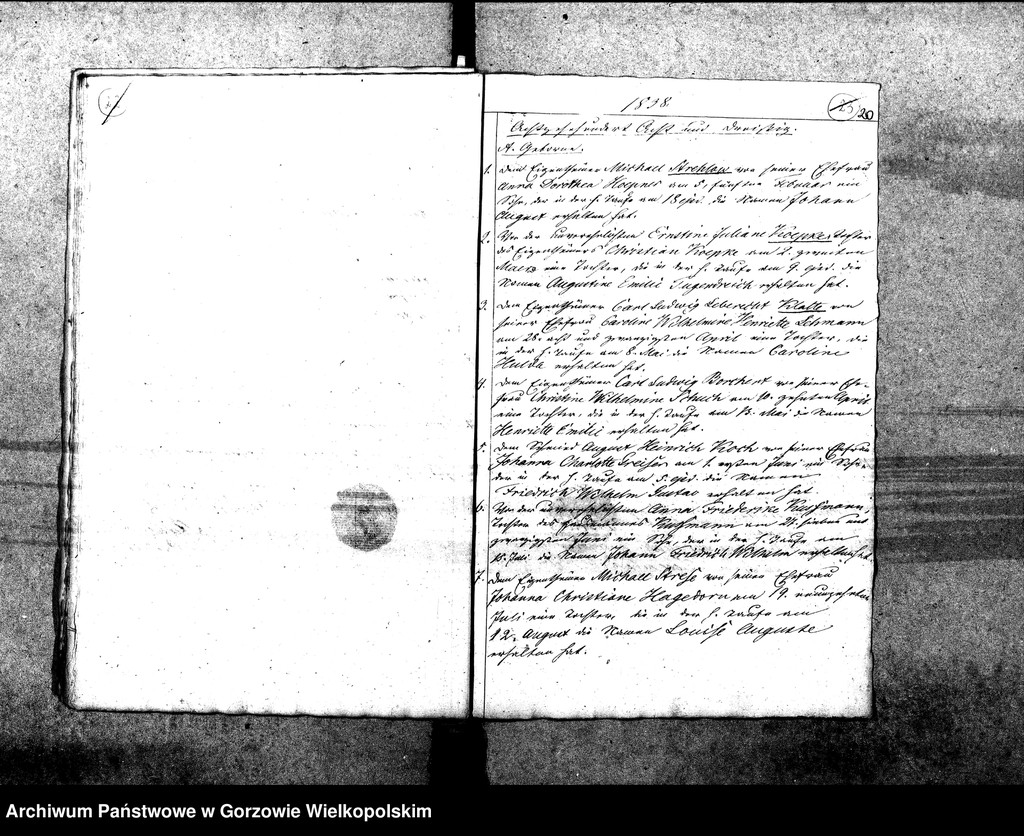 1838.
20
Achtzehnhundert Acht und Dreißig.
A. Geborne.
1. Dem Eigenthümer Michael Strehlow von seiner Ehefrau
Anna Dorothea Hoepner am 5. fünften Februar ein
Sohn, der in der h. Taufe am 18 ejsd. die Namen Johann
August erhalten hat.
2. Von der unverehelichten Ernstine Juliane Koepke, Tochter
des Eigenthümers Christian Koepke am 2. zweiten
Maerz eine Tochter, die in der h. Taufe am 9. ejsd. die
Namen Augustine Emilie Tugendreich erhalten hat.
3. Dem Eigenthümer Carl Ludwig Leberecht Klatte von
seiner Ehefrau Caroline Wilhelmine Henriette Lehmann
am 28. acht und zwanzigsten April eine Tochter, die
in der h. Taufe am 8. Mai die Namen Caroline
Hulda erhalten hat.
4. Dem Eigenthümer Carl Ludwig Borchert von seiner Ehe-
frau Christine Wilhelmine Schuch am 10. zehnten April
eine Tochter, die in der h. Taufe am 13. Mai die Namen
Henriette Emilie erhalten hat.
5. Dem Schmied August Heinrich Koch von seiner Ehefrau
Johanna Charlotte Greiser am 1. ersten Juni ein Sohn
der in der h. Taufe am 5. ejsd. die Namen
Friedrich Wilhelm Gustav erhalten hat
6. Von der unverehelichten Anna Friederike Kuffmann,
Tochter des Kuffmann am 27. sieben und
zwanzigsten Juni ein Sohn, der in der h. Taufe am
Juli die Namen Johann Friedrich Wilhelm erhalten hat.
7. Dem Eigenthümer Michael Strese von seiner Ehefrau
Johanna Christiane Hagedorn am 19. neunzehnten
Juli eine Tochter, die in der h. Taufe am
12. August die Namen Louise Auguste
erhalten hat.
Archiwum Państwowe w Gorzowie Wielkopolskim